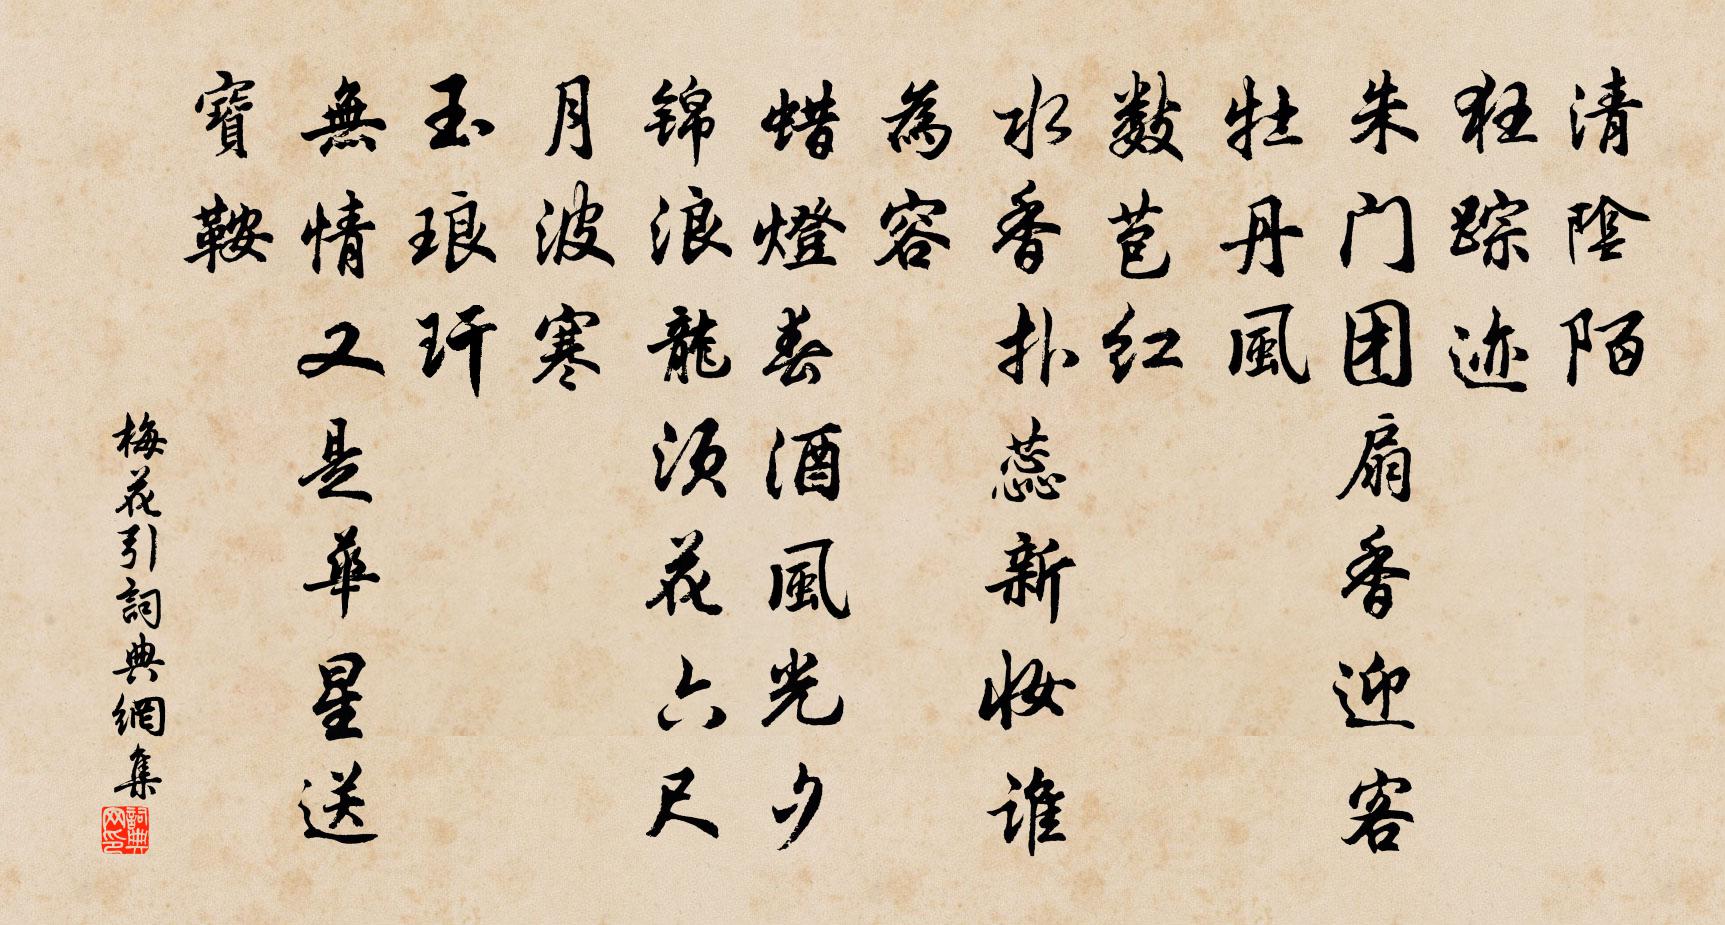 清陰陌
狂踪迹
朱门团扇香迎客
牡丹風
数苞红
水香扑蕊新妆谁
為容
蜡燈春酒風光夕
锦浪龍须花六尺
月波寒
玉琅玕
無情又是華星送
寶鞍
梅花引詞典網集
詞典网印